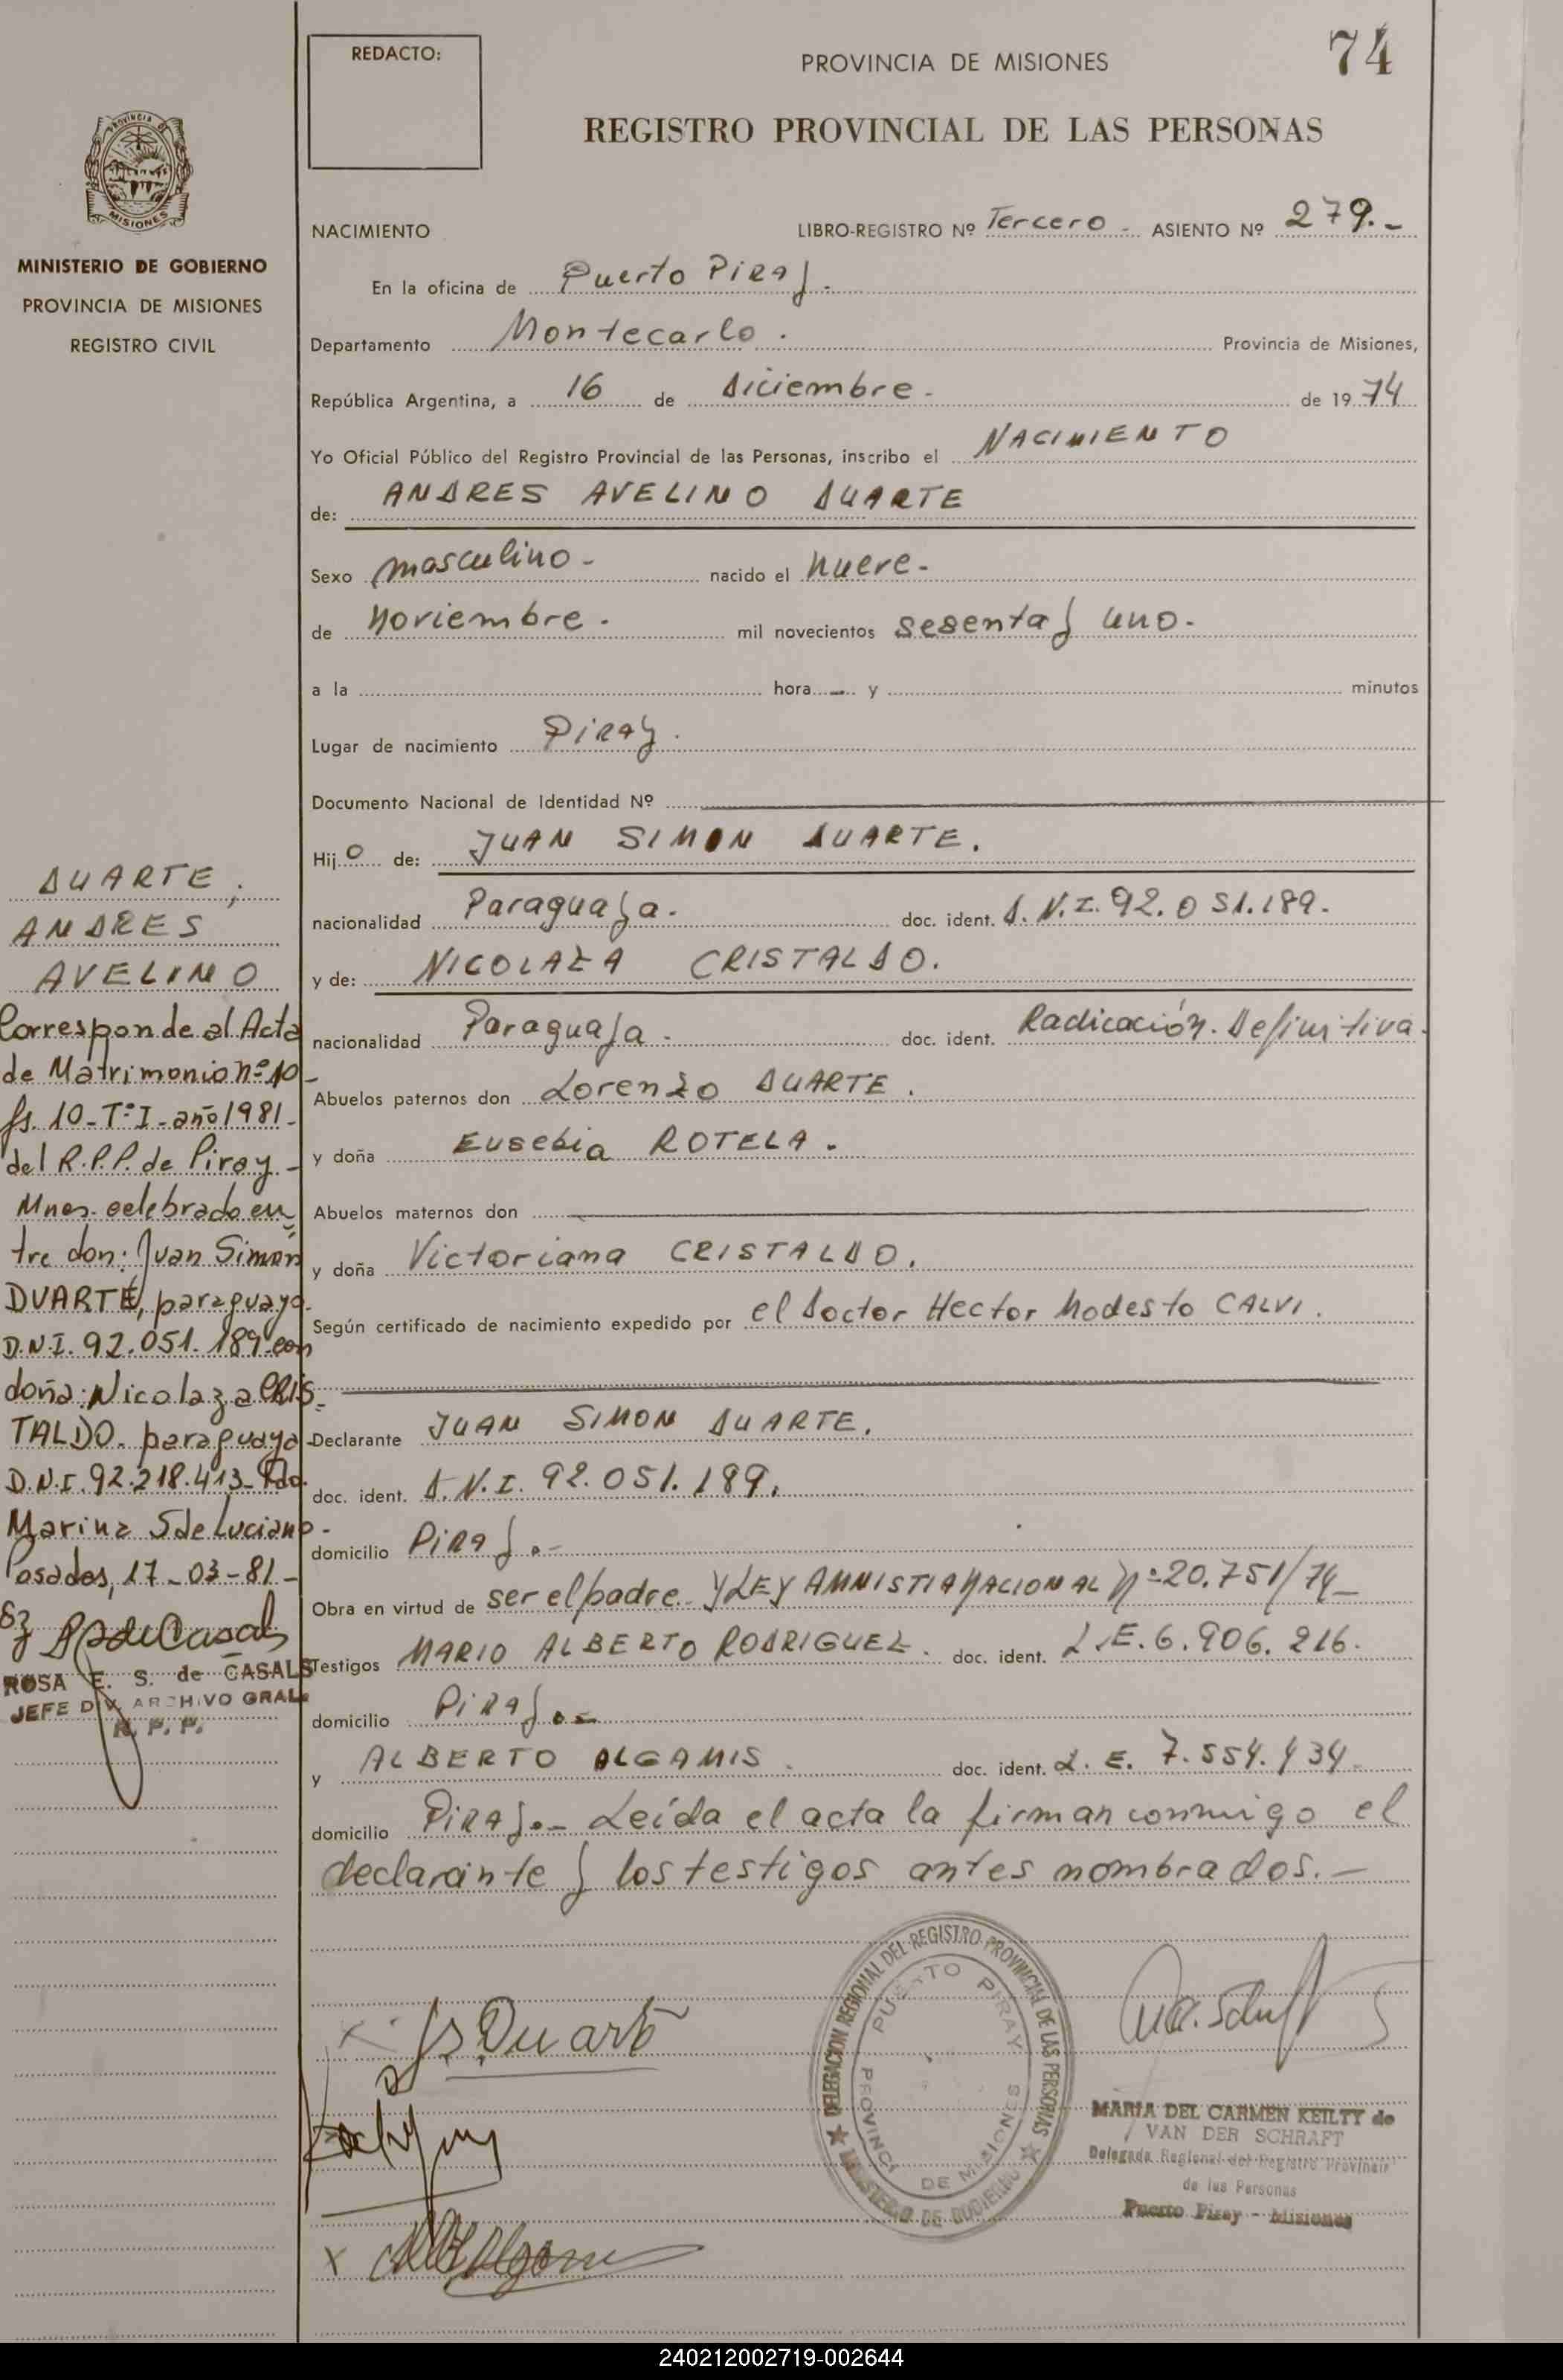 REDACTO:
PROVINCIA DE MISIONES
74
REGISTRO PROVINCIAL DE LAS PERSONAS
PROVINCIA DE
MISIONES
MINISTERIO DE GOBIERNO
PROVINCIA DE MISIONES
REGISTRO CIVIL
NACIMIENTO LIBRO-REGISTRO Nº Tercero - ASIENTO Nº 279.-
En la oficina de Puerto Piray.
Departamento Montecarlo. Provincia de Misiones,
República Argentina, a 16 de diciembre - de 1974
Yo Oficial Público del Registro Provincial de las Personas, inscribo el NACIMIENTO
de: ANDRES AVELINO DUARTE
Sexo masculino - nacido el nueve -
de noviembre. mil novecientos sesenta y uno.
a la hora - y minutos
Lugar de nacimiento Piray.
Documento Nacional de Identidad Nº
Hijo de: JUAN SIMON DUARTE.
nacionalidad Paraguaya. doc. ident. D.N.I. 92.051.189.
y de: NICOLAZA CRISTALDO.
nacionalidad Paraguaya. doc. ident. Radicación. Definitiva.
Abuelos paternos don Lorenzo DUARTE.
y doña Eusebia ROTELA.
Abuelos maternos don
y doña Victoriana CRISTALDO.
Según certificado de nacimiento expedido por el Doctor Hector Modesto CALVI.
Declarante JUAN SIMON DUARTE.
doc. ident. D.N.I. 92.051.189.
domicilio Piray.-
Obra en virtud de ser el padre. Y LEY AMNISTIA NACIONAL Nº 20.751/74-
Testigos MARIO ALBERTO RODRIGUEZ. doc. ident. L.E. 6.906.216.
domicilio Piray.-
y ALBERTO ALGAMIS. doc. ident. L.E. 7.554.434.
domicilio Piray.- Leída el acta la firman conmigo el
declarante y los testigos antes nombrados.-
DUARTE,
ANDRES
AVELINO
Corresponde al Acta
de Matrimonio nº 10-
fs. 10-Tº I-año 1981-
del R.P.P. de Piray-
Mnes. celebrado en
tre don: Juan Simón
DUARTE, paraguayo.
D.N.I. 92.051.189-con
doña: Nicolaza CRIS-
TALDO. paraguaya
D.N.I. 92.218.413-Fdo.
Marina S de Luciano-
Posadas, 17-03-81-
ROSA E. S. de CASALS
JEFE DIV. ARCHIVO GRAL.
R. P. P.
Js. Duarte
DELEGACION REGIONAL DEL REGISTRO PROVINCIAL DE LAS PERSONAS
MINISTERIO DE GOBIERNO
PUERTO PIRAY
PROVINCIA DE MISIONES
MARIA DEL CARMEN KEILTY de
VAN DER SCHRAFT
Delegada Regional del Registro Provincial
de las Personas
Puerto Piray - Misiones
240212002719-002644